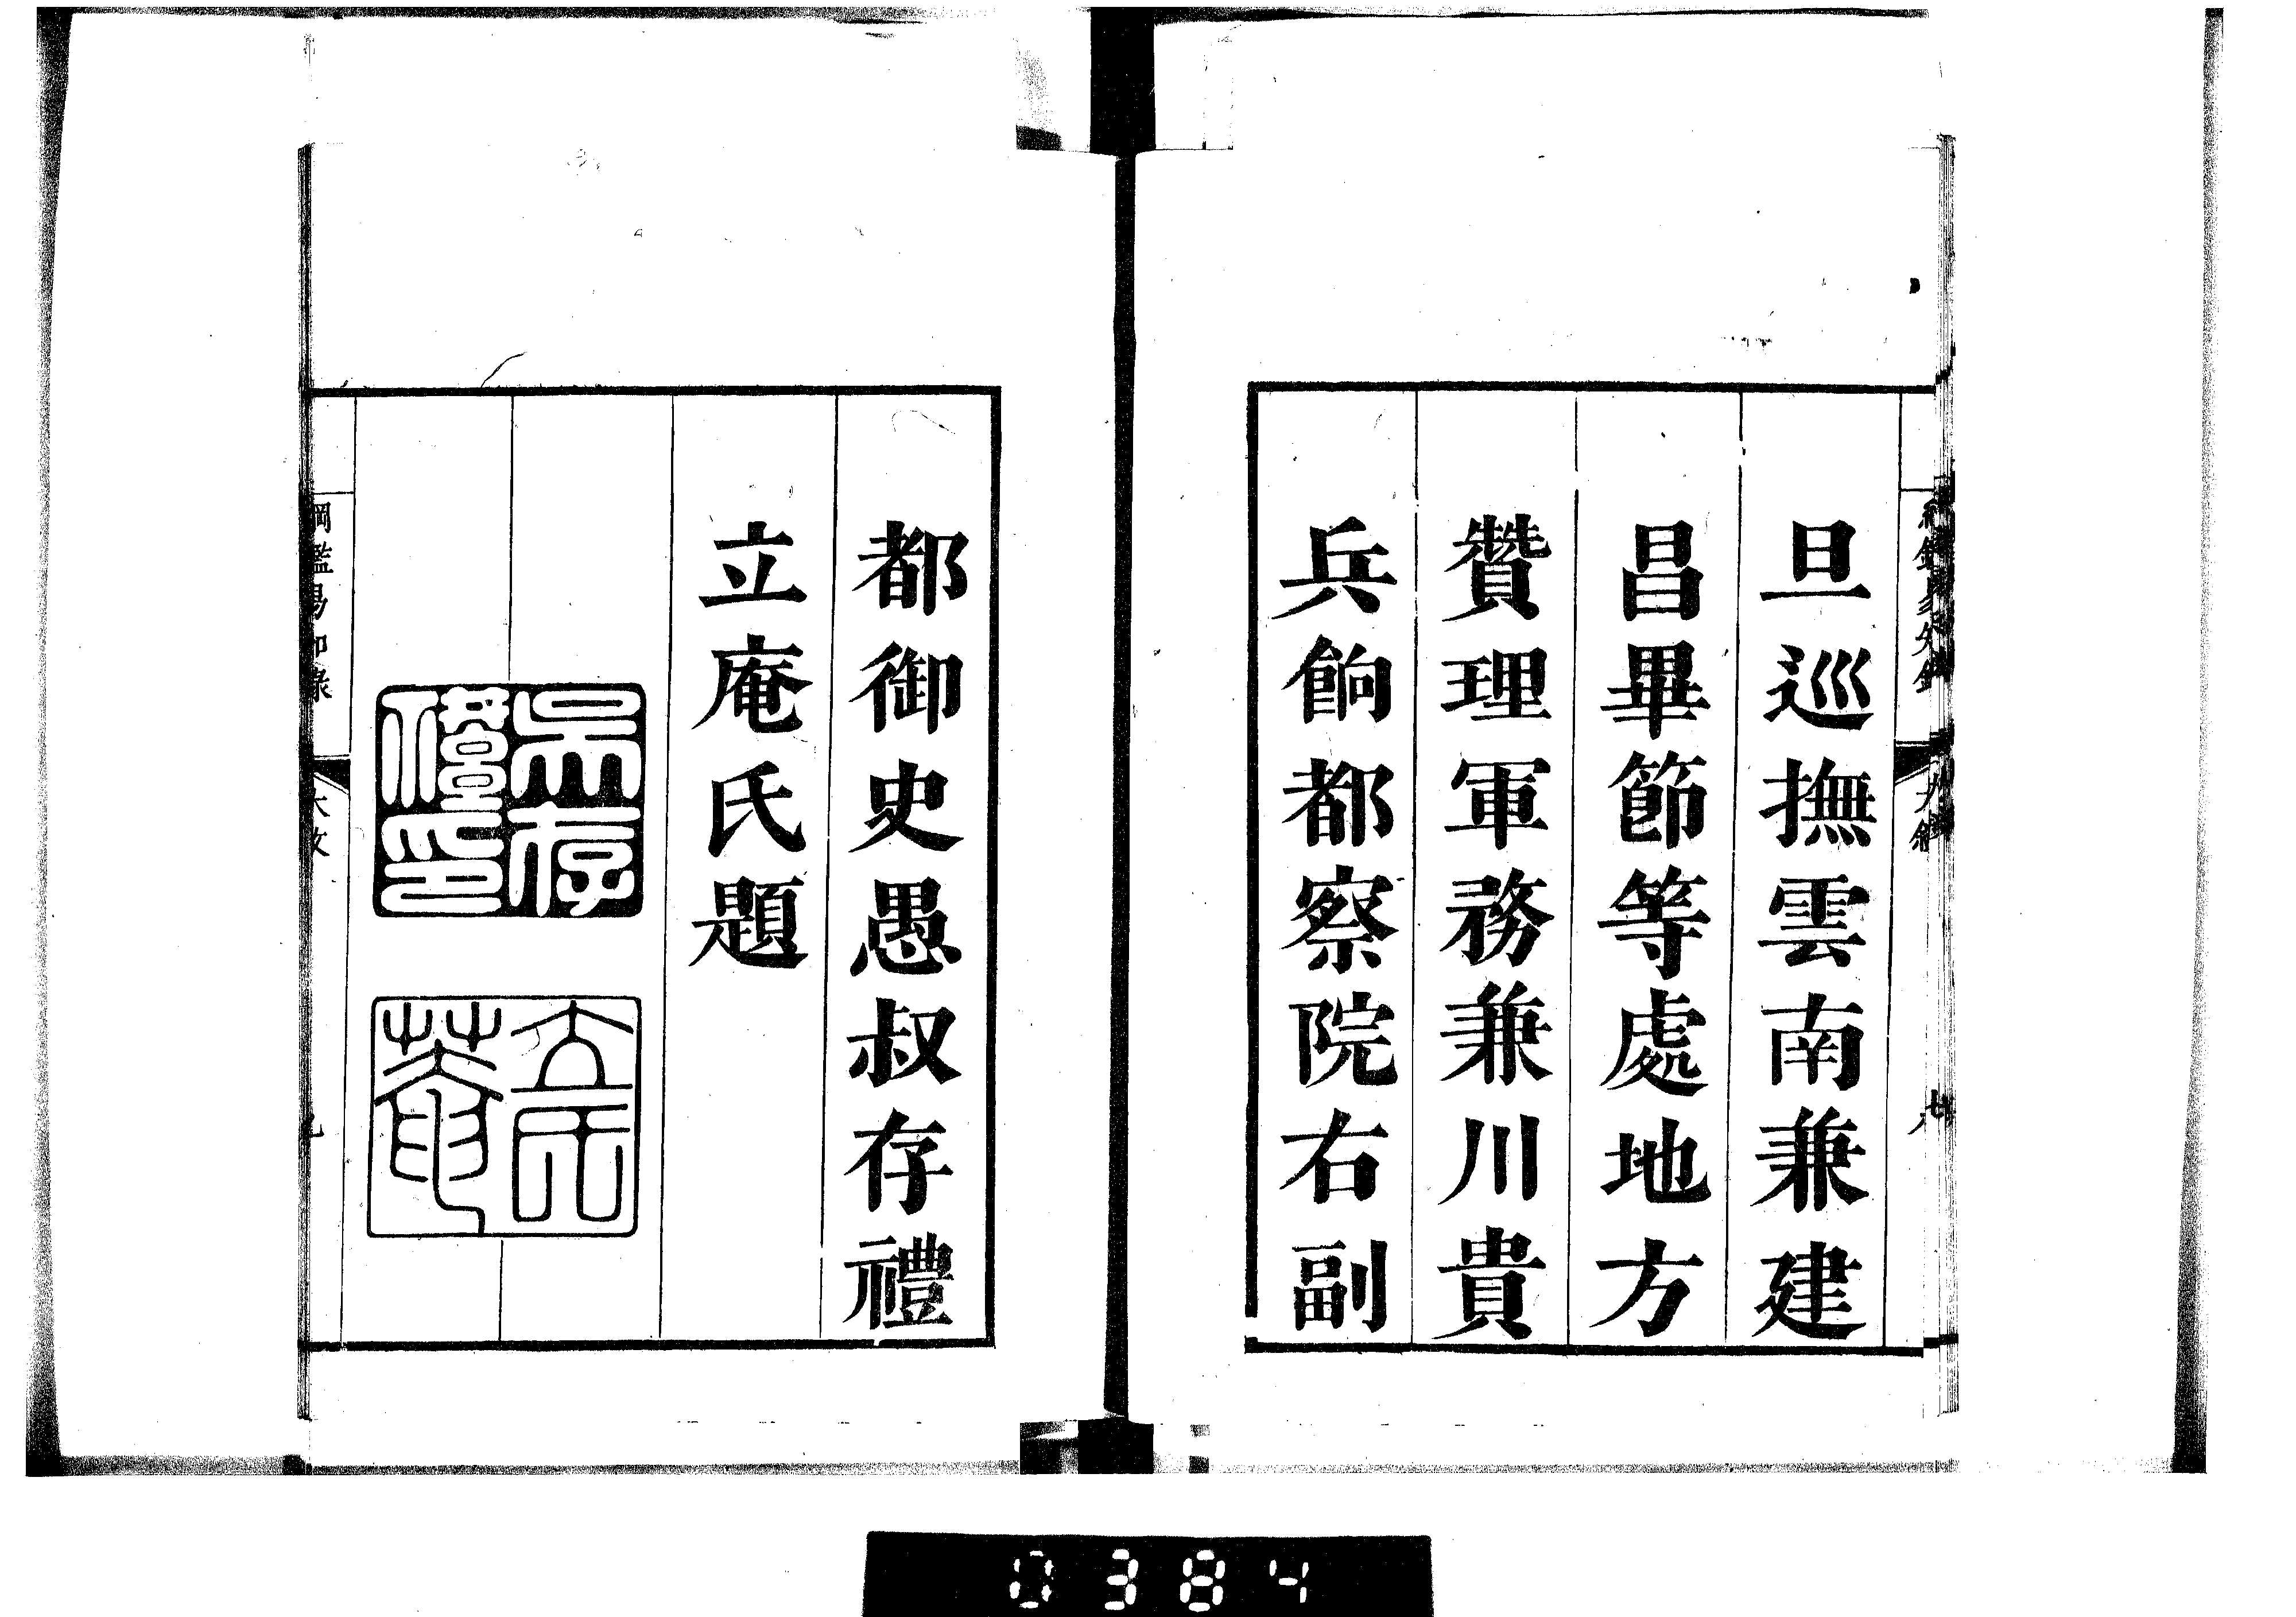 旦巡撫雲南兼建
昌畢節等處地方
贊理軍務兼川貴
兵餉都察院右副
都御史愚叔存禮
立庵氏題
吳存禮印
立菴
綱鑑易知錄
0384